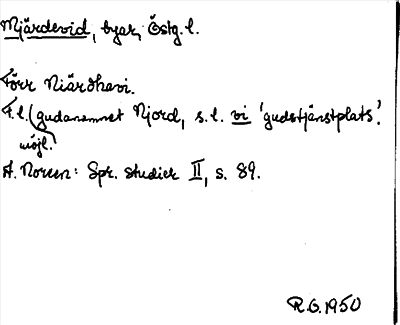 Mjärdevid, byar, Östg. l.
Förr Niärdhavi.
F. l. (gudanamnet Njord, s. l. vi 'gudstjänstplats'.
möjl.
A. Noreen: Spr. studier II, s. 89.
R.O. 1950